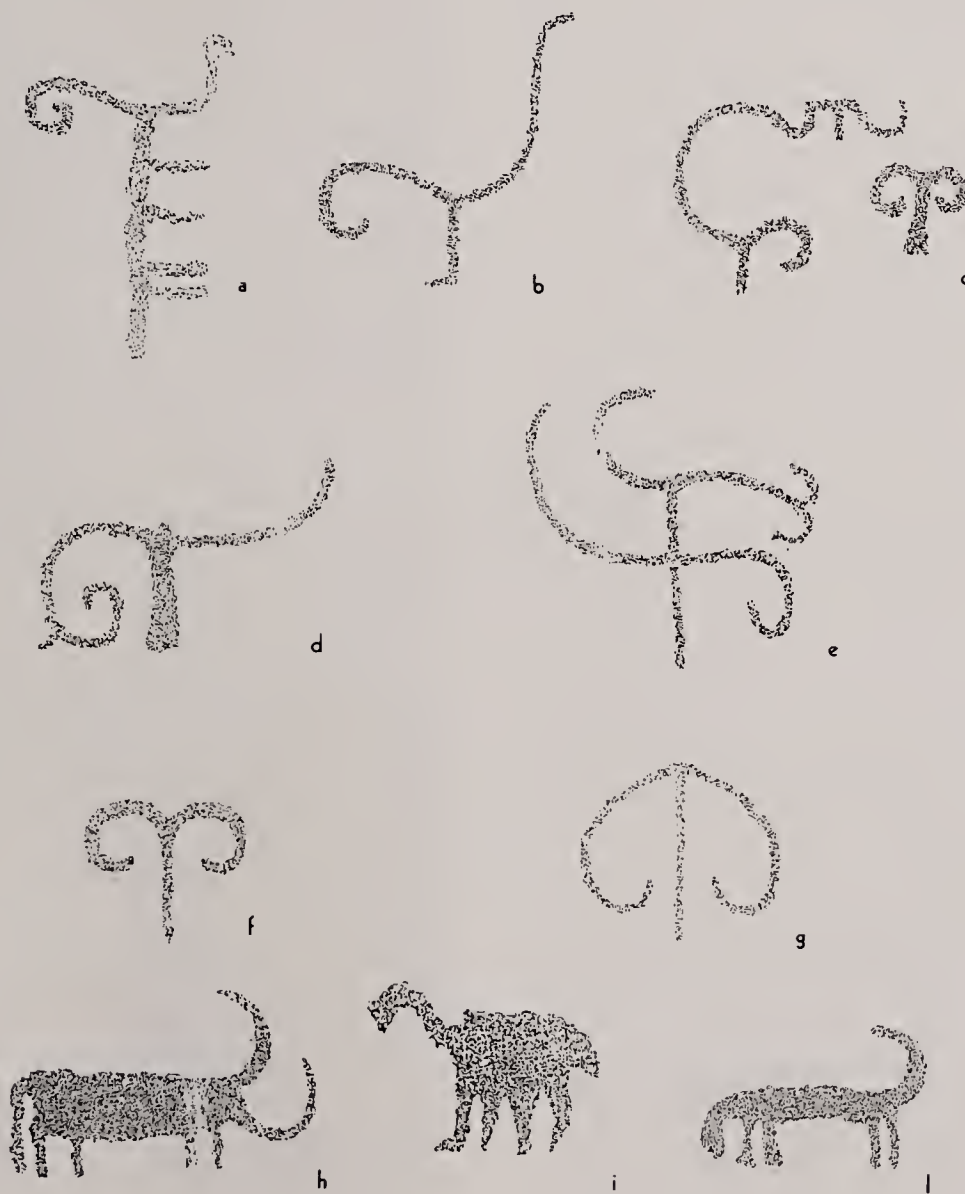 a
b
c
d
e
f
g
h
i
l